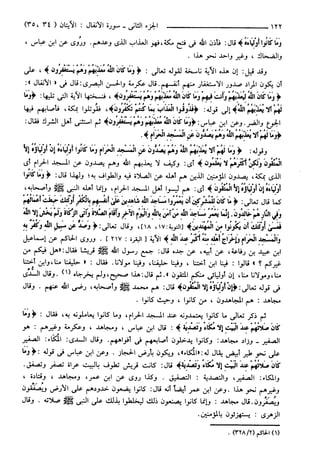 ١٢٢ الجزء الثاني - سورة الأنفال: الآيتان ( ٣٤ ، ٣٥)
وَمَا كَانُوا أَوْلِيَاءَهُ﴾ قال: فأذن الله في فتح مكة، فهو العذاب الذي وعدهم. وروى عن ابن عباس ،
والضحاك ، وغير واحد نحو هذا .
وقد قيل: إن هذه الآية ناسخة لقوله تعالى : ﴿وَمَا كَانَ اللَّهُ مُعَذِّبَهُمْ وَهُمْ يَسْتَغْفِرُونَ﴾ ، على
أن يكون المراد صدور الاستغفار منهم أنفسهم. قال عكرمة والحسن البصري: قال في « الأنفال »:
﴿وَمَا كَانَ اللَّهُ لِيُعَذِّبَهُمْ وَأَنتَ فِيهِمْ وَمَا كَانَ اللَّهُ مُعَذِّبَهُمْ وَهُمْ يَسْتَغْفِرُونَ﴾، فنسختها الآية التي تليها: ﴿وَمَا
لَهُمْ أَلَّا يُعَذِّبَهُمُ اللَّهُ﴾ إلى قوله: ﴿فَذُوقُوا الْعَذَابَ بِمَا كُنتُمْ تَكْفُرُونَ﴾، فقوتلوا بمكة، فأصابهم فيها
الجوع والضر. وعن ابن عباس: ﴿وَمَا كَانَ اللَّهُ مُعَذِّبَهُمْ وَهُمْ يَسْتَغْفِرُونَ﴾ ثم استثنى أهل الشرك فقال:
﴿وَمَا لَهُمْ أَلَّا يُعَذِّبَهُمُ اللَّهُ وَهُمْ يَصُدُّونَ عَنِ الْمَسْجِدِ الْحَرَامِ﴾.
وقوله: ﴿وَمَا لَهُمْ أَلَّا يُعَذِّبَهُمُ اللَّهُ وَهُمْ يَصُدُّونَ عَنِ الْمَسْجِدِ الْحَرَامِ وَمَا كَانُوا أَوْلِيَاءَهُ إِنْ أَوْلِيَاؤُهُ إِلَّا
الْمُتَّقُونَ وَلَٰكِنَّ أَكْثَرَهُمْ لَا يَعْلَمُونَ﴾ أي: وكيف لا يعذبهم الله وهم يصدون عن المسجد الحرام أي
الذي بمكة، يصدون المؤمنين الذين هم أهله عن الصلاة فيه والطواف به؛ ولهذا قال: ﴿وَمَا كَانُوا
أَوْلِيَاءَهُ إِنْ أَوْلِيَاؤُهُ إِلَّا الْمُتَّقُونَ﴾ أي: هم ليسوا أهل المسجد الحرام، وإنما أهله النبي ﷺ وأصحابه،
كما قال تعالى: ﴿مَا كَانَ لِلْمُشْرِكِينَ أَن يَعْمُرُوا مَسَاجِدَ اللَّهِ شَاهِدِينَ عَلَىٰ أَنفُسِهِم بِالْكُفْرِ أُولَٰئِكَ حَبِطَتْ أَعْمَالُهُمْ
وَفِي النَّارِ هُمْ خَالِدُونَ. إِنَّمَا يَعْمُرُ مَسَاجِدَ اللَّهِ مَنْ آمَنَ بِاللَّهِ وَالْيَوْمِ الْآخِرِ وَأَقَامَ الصَّلَاةَ وَآتَى الزَّكَاةَ وَلَمْ يَخْشَ إِلَّا اللَّهَ
فَعَسَىٰ أُولَٰئِكَ أَن يَكُونُوا مِنَ الْمُهْتَدِينَ﴾ [التوبة: ١٧، ١٨]، وقال تعالى: ﴿وَصَدٌّ عَن سَبِيلِ اللَّهِ وَكُفْرٌ بِهِ
وَالْمَسْجِدِ الْحَرَامِ وَإِخْرَاجُ أَهْلِهِ مِنْهُ أَكْبَرُ عِندَ اللَّهِ﴾ الآية [ البقرة : ٢١٧] . وروى الحاكم عن إسماعيل
ابن عبيد بن رفاعة، عن أبيه، عن جده قال: جمع رسول الله ﷺ قريشاً فقال: «هل فيكم من
غيركم ؟ » قالوا : فينا ابن أختنا ، وفينا حليفنا، وفينا مولانا. فقال: « حليفنا منا، وابن أختنا
منا، ومولانا منا، إن أوليائي منكم المتقون ». ثم قال: هذا صحيح، ولم يخرجاه (١) . وقال السدي
في قوله تعالى: ﴿إِنْ أَوْلِيَاؤُهُ إِلَّا الْمُتَّقُونَ﴾ قال: هم محمد ﷺ وأصحابه، رضى الله عنهم . وقال
مجاهد : هم المجاهدون ، من كانوا ، وحيث كانوا .
ثم ذكر تعالى ما كانوا يعتمدونه عند المسجد الحرام، وما كانوا يعاملونه به، فقال: ﴿ وَمَا
كَانَ صَلَاتُهُمْ عِندَ الْبَيْتِ إِلَّا مُكَاءً وَتَصْدِيَةً﴾ : قال ابن عباس ، ومجاهد ، وعكرمة وغيرهم : هو
الصفير - وزاد مجاهد: وكانوا يدخلون أصابعهم في أفواههم. وقال السدي: المُكَاء: الصفير
على نحو طير أبيض يقال له: «المكاء»، ويكون بأرض الحجاز. وعن ابن عباس في قوله: ﴿وَمَا
كَانَ صَلَاتُهُمْ عِندَ الْبَيْتِ إِلَّا مُكَاءً وَتَصْدِيَةً﴾ قال: كانت قريش تطوف بالبيت عراة تصفر وتصفق.
والمكاء: الصفير، والتصدية : التصفيق . وكذا روى عن ابن عمر، ومجاهد ، وقتادة ،
وغيرهم نحو هذا. وعن ابن عمر أيضاً أنه قال: كانوا يضعون خدودهم على الأرض ويُصَفِّقون
ويُصَفِّرون. قال مجاهد : وإنما كانوا يصنعون ذلك ليخلطوا بذلك على النبي ﷺ صلاته . وقال
الزهري : يستهزئون بالمؤمنين.
(١) الحاكم (٣٢٨/٢) .